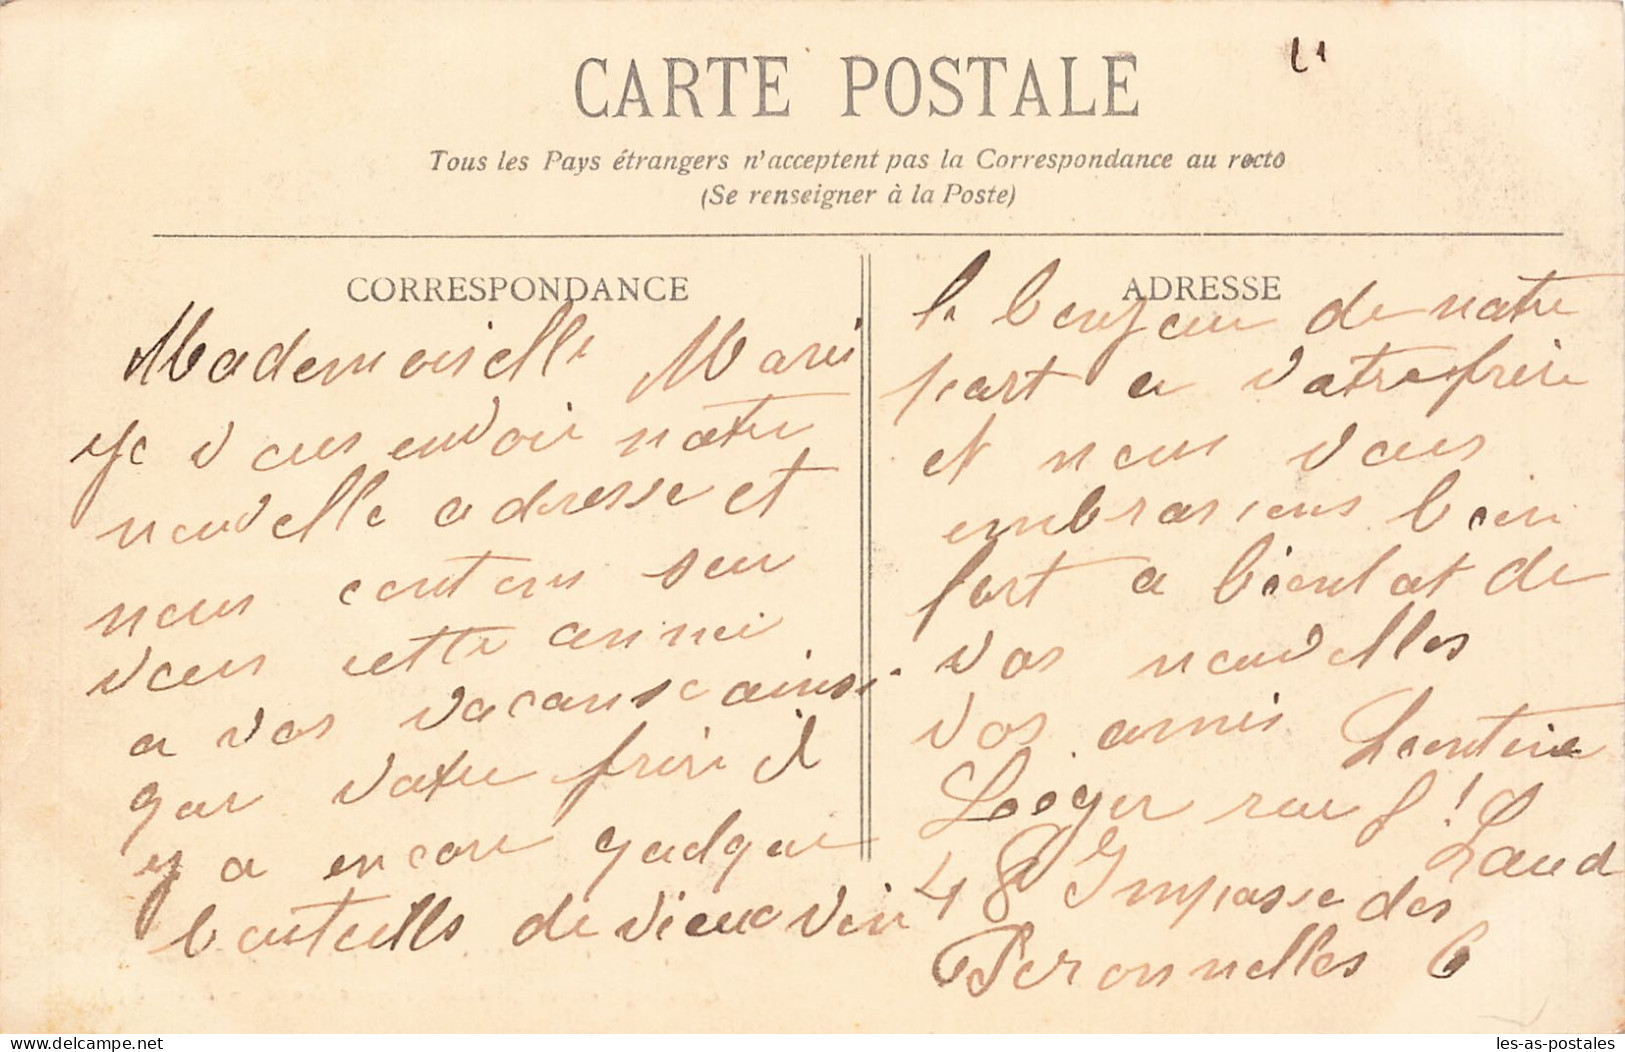 CARTE POSTALE
Tous les Pays étrangers n'acceptent pas la Correspondance au recto
(Se renseigner à la Poste)
CORRESPONDANCE
Mademoiselle Marie
je vous envoie notre
nouvelle adresse et
nous conton sur
vous cette annee
a vos vacanse ainsi
que votre frere il
y a encore quelque
bouteills de vieux vin
ADRESSE
le bonjour de notre
part a votre frere
et nous vous
embrasions bien
fort a bientot de
vos nouvelles
vos amis Leontine
Leger rue
48 Impasse des
Peronnelles 6
les-as-postales.delcampe.net
les-as-postales